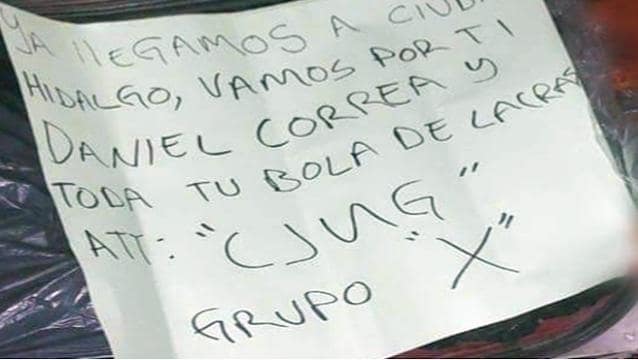 YA LLEGAMOS A CIUD
HIDALGO, VAMOS POR TI
DANIEL CORREA Y
TODA TU BOLA DE LACRAS
ATT: "CJNG"
GRUPO "X"